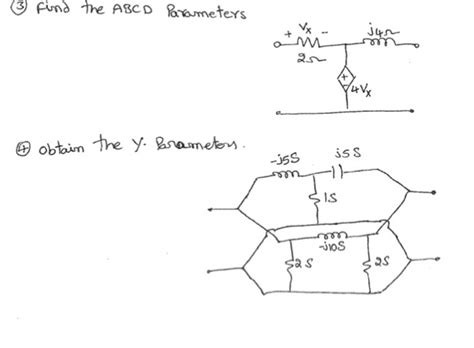 ③ Find the ABCD Parameters
+ Vx -
2Ω
j4Ω
+
-
4Vx
④ Obtain the Y- Parameters.
-j5S
j5S
1S
-j10S
2S
2S